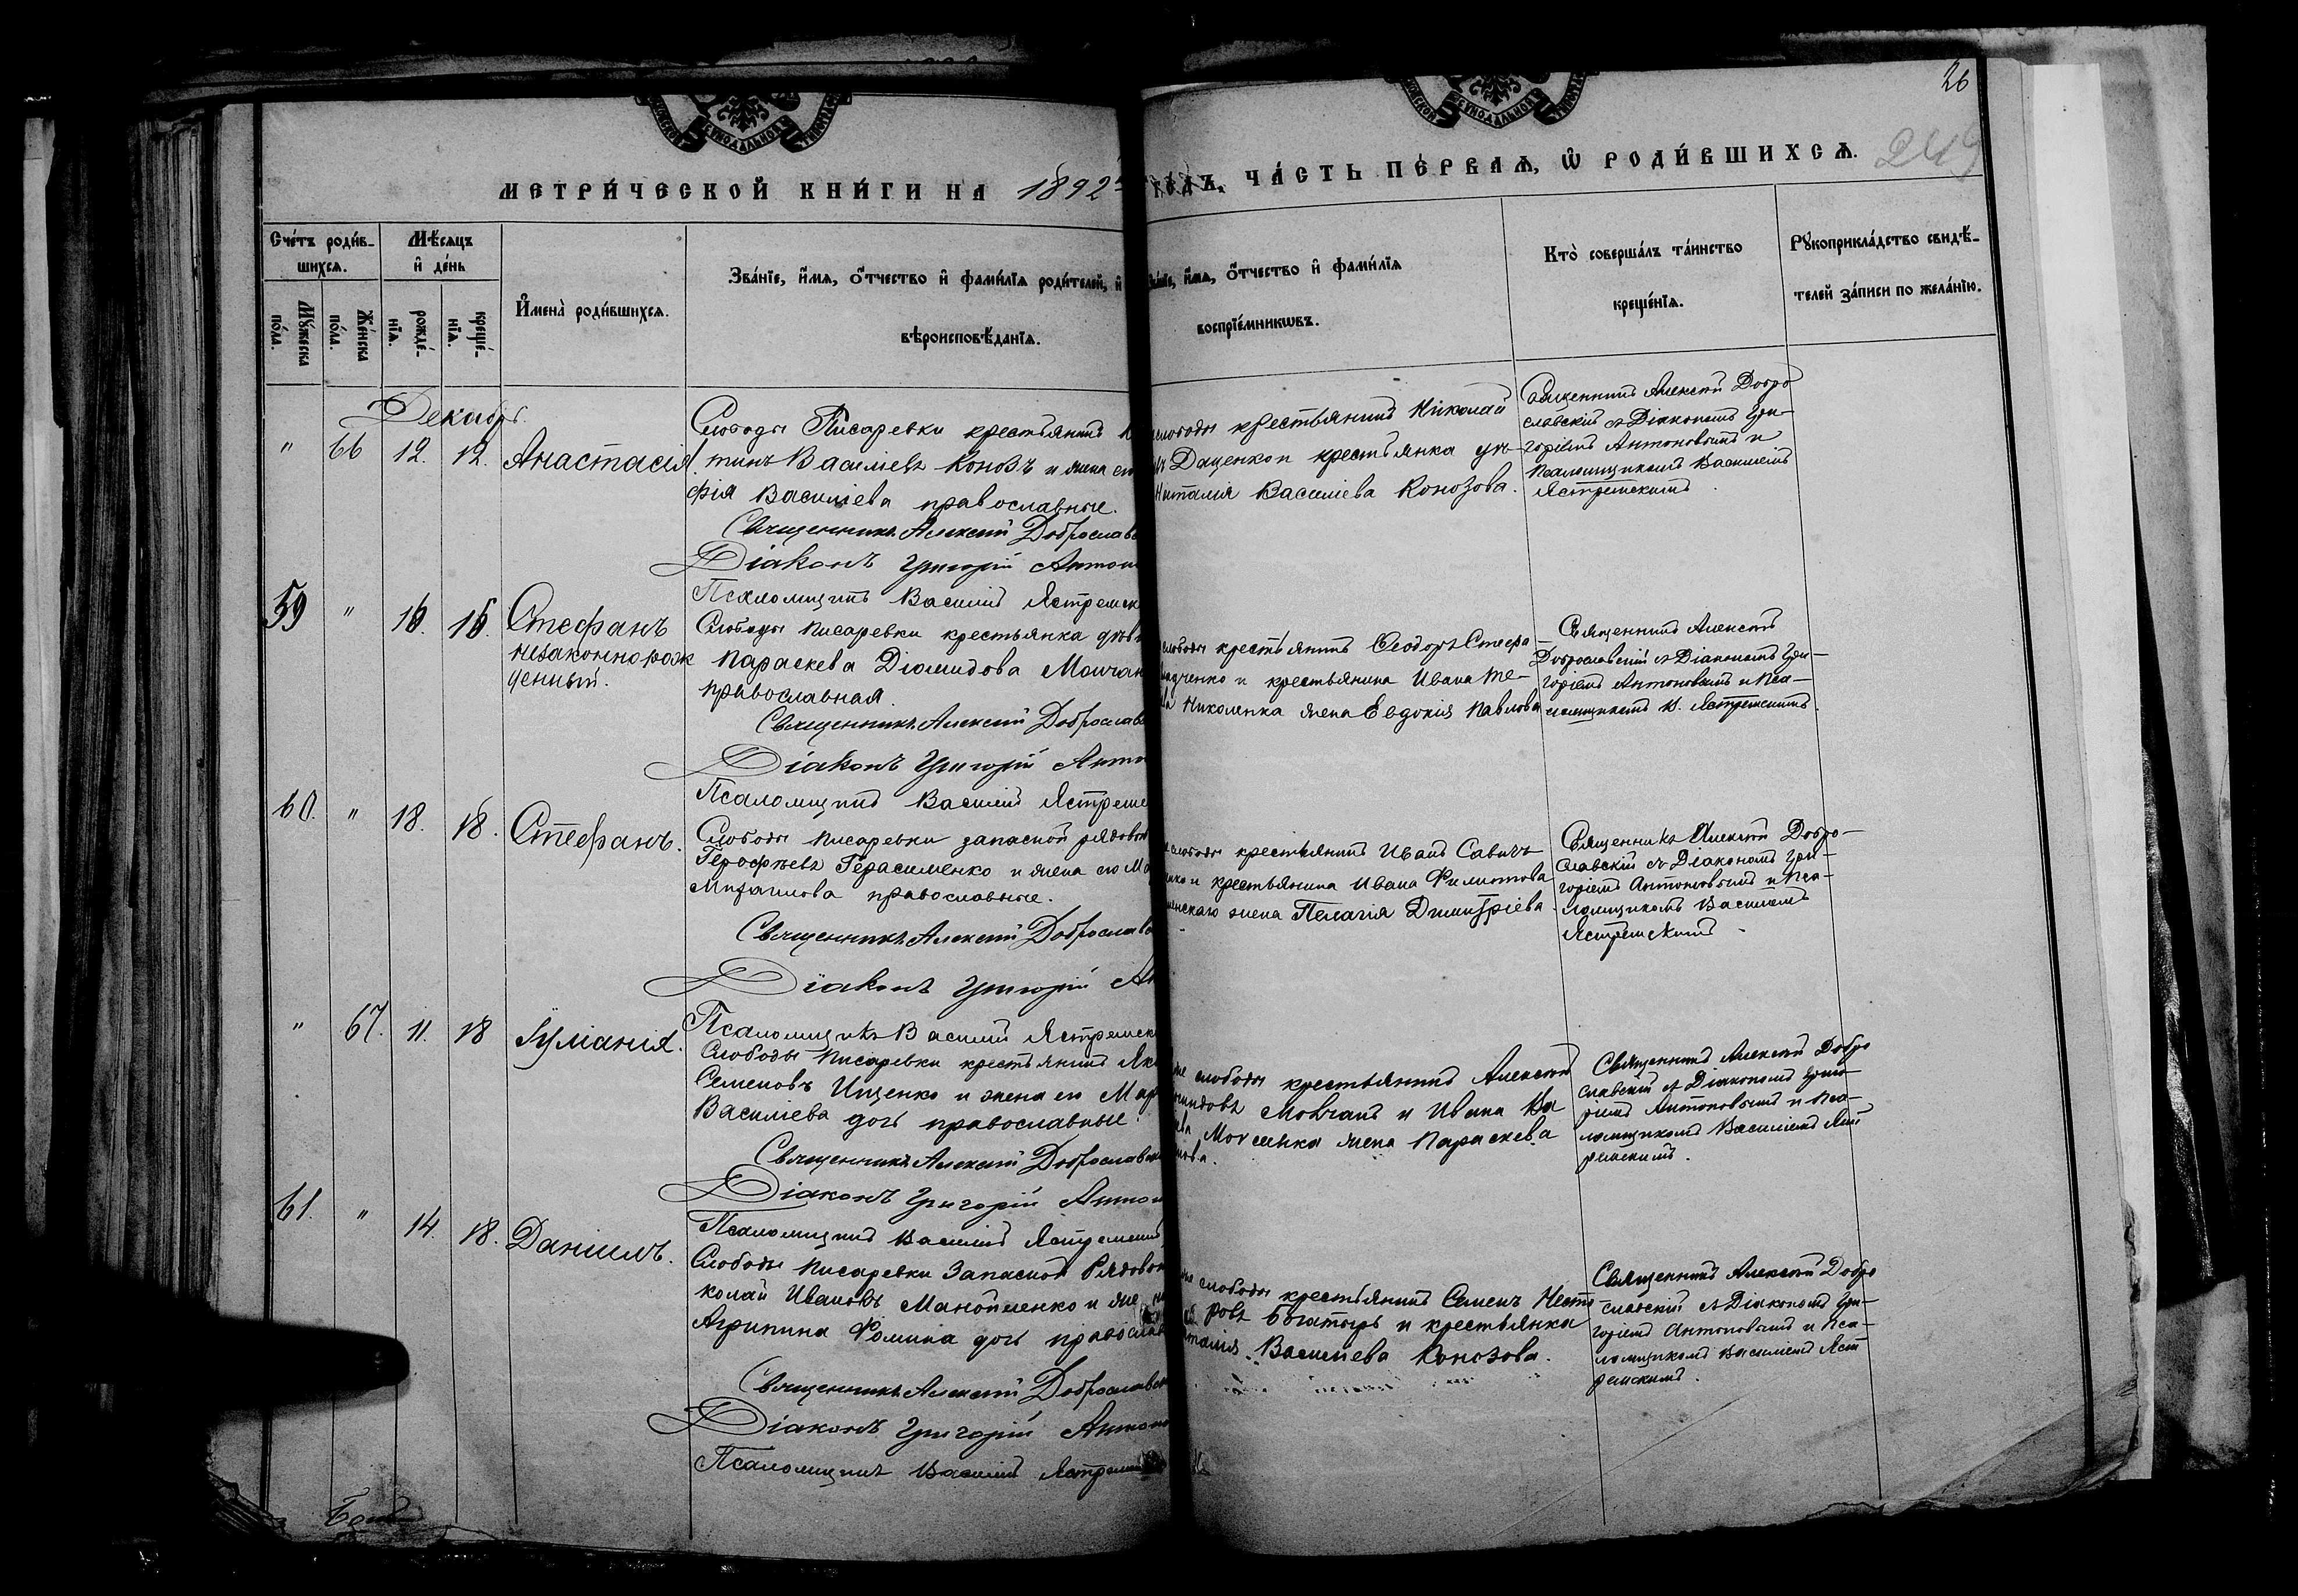 26
249
МЕТРИЧЕСКОЙ КНИГИ НА 1892 ГОДЪ, ЧАСТЬ ПЕРВАЯ, Ѡ РОДИВШИХСЯ.
Счетъ родив-
шихся.
Мужеска
пола.
Женска
пола.
Мѣсяцъ
и день
рожде-
нія.
креще-
нія.
Имена родившихся.
Званіе, имя, отчество и фамилія родителей, и
вѣроисповѣданія.
Званіе, имя, отчество и фамилія
воспріемниковъ.
Кто совершалъ таинство
крещенія.
Рукоприкладство свидѣ-
телей записи по желанію.
Декабрь.
" 66 12. 12. Анастасія
Слободы Писаревки крестьянинъ
тинъ Василіевъ Коновъ и жена его
фія Василіева православные.
Священникъ Алексій Доброслав
Діаконъ Григорій Антон
Псаломщикъ Василій Ястремск
слободы крестьянинъ Николай
Даценко и крестьянка дѣ-
Наталія Василіева Конозова.
Священникъ Алексій Добро
славскій съ Діакономъ Гри-
горіемъ Антоновымъ и
Псаломщикомъ Василіемъ
Ястремскимъ.
59 " 16. 16. Стефанъ
незаконнорож
денный.
Слободы Писаревки крестьянка дѣв
Параскева Діомидова Молчан
православная.
Священникъ Алексій Доброслав
Діаконъ Григорій Анто
Псаломщикъ Василій Ястремс
слободы крестьянинъ Ѳеодоръ Стефа
дченко и крестьянина Ивана Те-
ва Николенка жена Евдокія Павлова
Священникъ Алексій
Доброславскій съ Діакономъ Гри-
горіемъ Антоновымъ и Пса-
ломщикомъ В. Ястремскимъ.
60. " 18. 18. Стефанъ.
Слободы Писаревки запасной рядовой
Герофѣевъ Герасименко и жена его Ма
Михаилова православные.
Священникъ Алексій Доброслав
Діаконъ Григорій Ан
Псаломщикъ Василій Ястремск
слободы крестьянинъ Иванъ Савичъ
нко и крестьянина Ивана Филиппова
менскаго жена Пелагія Димитріева
Священникъ Алексій Добро-
славскій съ Діакономъ Гри-
горіемъ Антоновымъ и Пса-
ломщикомъ Василіемъ
Ястремскимъ.
" 67. 11. 18 Іуліанія.
Слободы Писаревки крестьянинъ Яко
Семеновъ Ищенко и жена его Мар
Василіева дочь православные.
Священникъ Алексій Доброславск
Діаконъ Григорій Антон
Псаломщикъ Василій Ястремскій
слободы крестьянинъ Алексій
мидовъ Молчанъ и Ивана Ва
ва Мосенка жена Параскева
нова.
Священникъ Алексій Добро
славскій съ Діакономъ Григо-
ріемъ Антоновымъ и Пса-
ломщикомъ Василіемъ Яст
ремскимъ.
61. " 14. 18. Даніилъ.
Слободы Писаревки Запасной Рядовой
колай Ивановъ Манойленко и же
Агрипина Ѳомина дочь православ
Священникъ Алексій Доброславск
Діаконъ Григорій Антоно
Псаломщикъ Василій Ястремск
слободы крестьянинъ Семенъ Несте
ровъ Богатырь и крестьянка
талія Василіева Конозова.
Священникъ Алексій Добро
славскій съ Діакономъ Гри-
горіемъ Антоновымъ и Пса-
ломщикомъ Василіемъ Яст
ремскимъ.